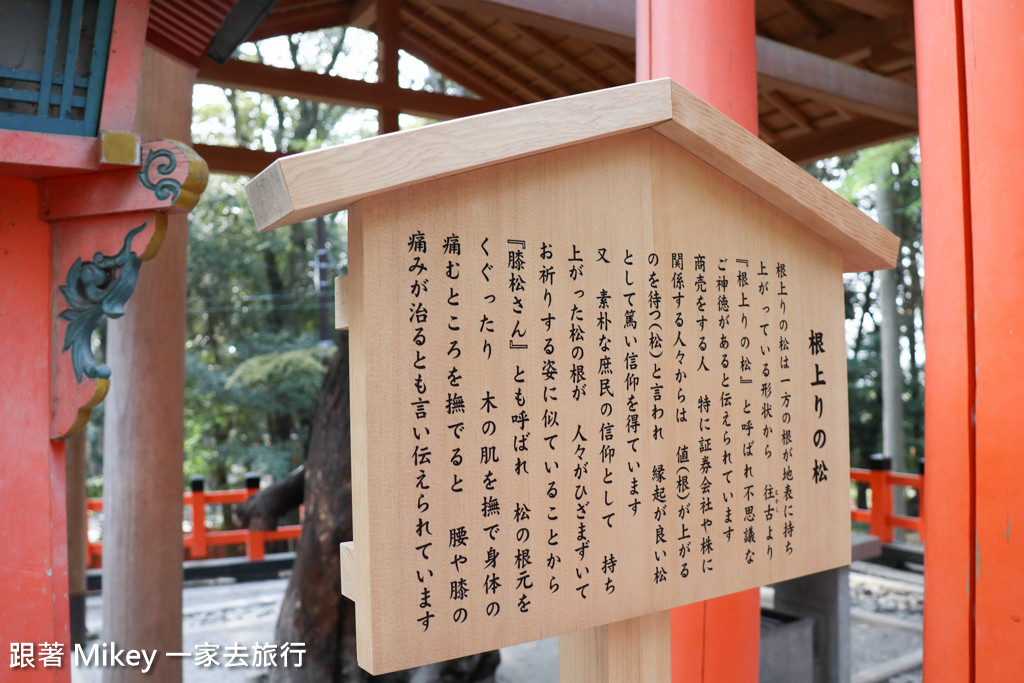 根上りの松
根上りの松は一方の根が地表に持ち
上がっている形状から　往古より
『根上りの松』と呼ばれ不思議な
ご神徳があると伝えられています
商売をする人　特に証券会社や株に
関係する人々からは　値(根)が上がる
のを待つ(松)と言われ　縁起が良い松
として篤い信仰を得ています
又　素朴な庶民の信仰として　持ち
上がった松の根が　人々がひざまずいて
お祈りする姿に似ていることから
『膝松さん』とも呼ばれ　松の根元を
くぐったり　木の肌を撫で身体の
痛むところを撫でると　腰や膝の
痛みが治るとも言い伝えられています
跟著 Mikey 一家去旅行